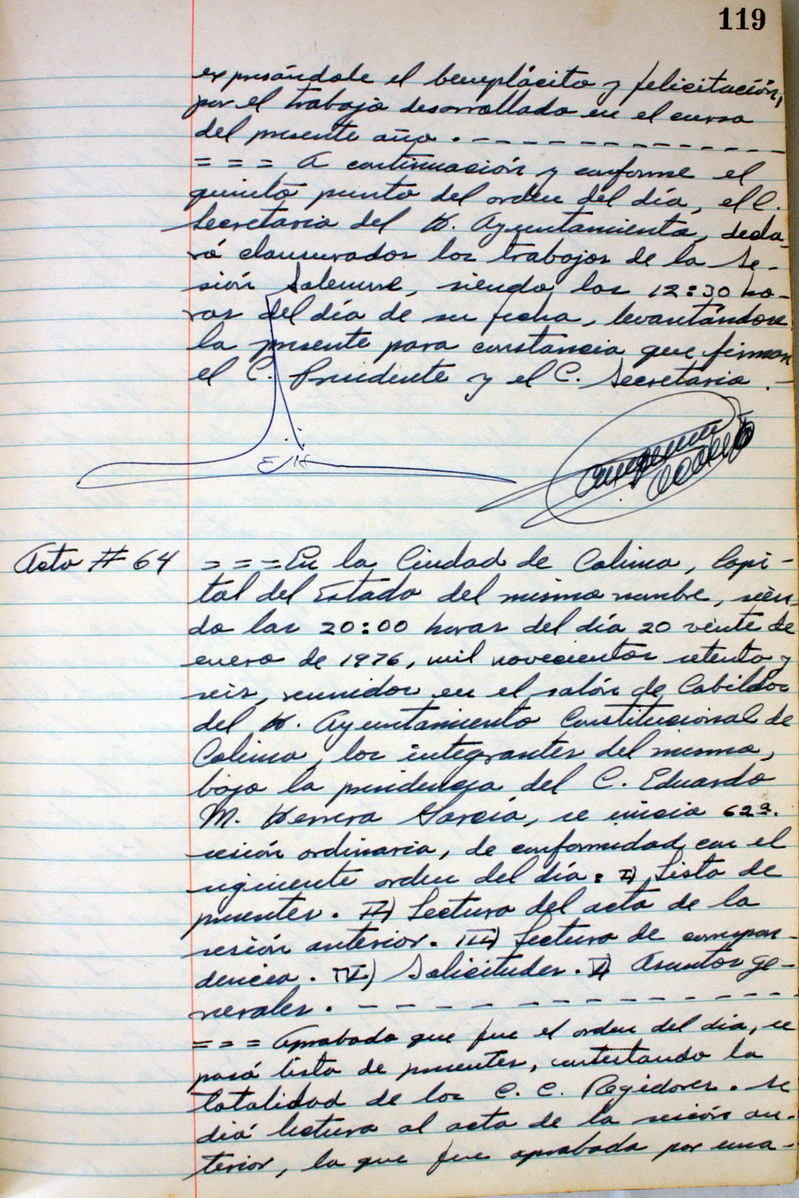 119
expresándole el beneplácito y felicitación,
por el trabajo desarrollado en el curso
del presente año. - - - - - - - - - - - -
= = = A continuación y conforme el
quinto punto del orden del día, el C.
Secretario del H. Ayuntamiento, decla-
ró clausurados los trabajos de la Se-
sión Solemne, siendo las 12:30 ho-
ras del día de su fecha, levantándose
la presente para constancia que firman
el C. Presidente y el C. Secretario. -
Acta # 64 = = = En la Ciudad de Colima, Capi-
tal del Estado del mismo nombre, sien-
do las 20:00 horas del día 20 veinte de
enero de 1976, mil novecientos setenta y
seis, reunidos en el salón de Cabildos
del H. Ayuntamiento Constitucional de
Colima, los integrantes del mismo,
bajo la presidencia del C. Eduardo
M. Herrera García, se inicia 62a.
sesión ordinaria, de conformidad con el
siguiente orden del día: I) Lista de
presentes. II) Lectura del acta de la
sesión anterior. III) Lectura de correspon-
dencia. IV) Solicitudes. V) Asuntos ge-
nerales. - - - - - - - - - - - - - - -
= = = Aprobado que fue el orden del día, se
pasó lista de presentes, contestando la
totalidad de los C. C. Regidores. Se
dió lectura al acta de la sesión an-
terior, la que fue aprobada por una-